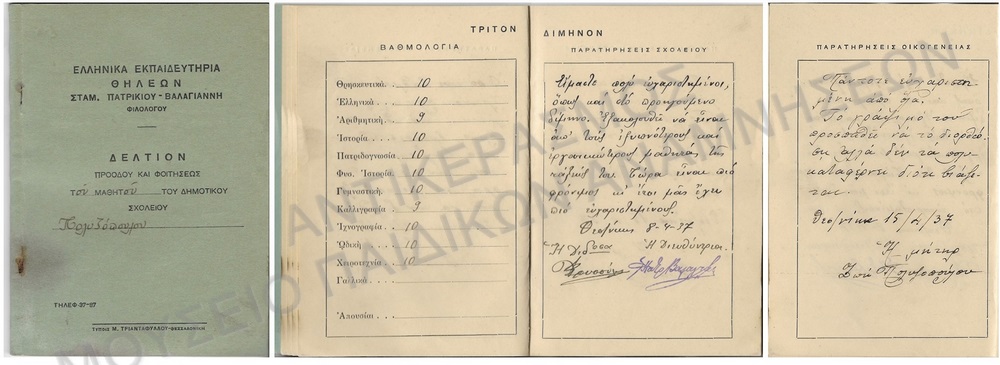 ΕΛΛΗΝΙΚΑ ΕΚΠΑΙΔΕΥΤΗΡΙΑ
ΘΗΛΕΩΝ
ΣΤΑΜ. ΠΑΤΡΙΚΙΟΥ-ΒΑΛΑΓΙΑΝΝΗ
ΦΙΛΟΛΟΓΟΥ
ΔΕΛΤΙΟΝ
ΠΡΟΟΔΟΥ ΚΑΙ ΦΟΙΤΗΣΕΩΣ
ΤΟῦ ΜΑΘΗΤοῦ ΤΟΥ ΔΗΜΟΤΙΚΟΥ
ΣΧΟΛΕΙΟΥ
ΤΗΛΕΦ·37-67
ΤΥΠΟΙΣ Μ. ΤΡΙΑΝΤΑΦΥΛΛΟΥ-ΘΕΣΣΑΛΟΝΙΚΗ
ΤΡΙΤΟΝ ΔΙΜΗΝΟΝ
ΒΑΘΜΟΛΟΓΙΑ
Θρησκευτικά 10
Ἑλληνικά 10
Ἀριθμητική 9
Ἱστορία 10
Πατριδογνωσία 10
Φυσ. Ἱστορία 10
Γυμναστική 10
Καλλιγραφία 9
Ἰχνογραφία 10
Ὠδική 10
Χειροτεχνία 10
Γαλλικά
Ἀπουσίαι
ΠΑΡΑΤΗΡΗΣΕΙΣ ΣΧΟΛΕΙΟΥ
Εἴμαστε πολύ εὐχαριστημένοι,
ὅπως καί στό προηγούμενο
δίμηνο. Ἐξακολουθεῖ νά εἶναι
ἀπ' τούς ἐξυπνότερους καί
ἐργατικώτερους μαθητάς τῆς
τάξεώς του. Τώρα εἶναι πιό
φρόνιμος κι' ἔτσι μᾶς ἔχει
πιό εὐχαριστημένους.
8-4-37
Ἡ Διδ/σα Ἡ Διευθύντρια
ΠΑΡΑΤΗΡΗΣΕΙΣ ΟΙΚΟΓΕΝΕΙΑΣ
Πάντοτε εὐχαριστη
μένη ἀπό ὅλα.
Τό γράψιμό του
προσπαθεῖ νά τό διορθώ
σῃ ἀλλά δέν τά πολυ
καταφέρνει διότι βιάζε
ται.
Θεσ/νίκη 15/4/37
Ἡ μήτηρ
ΑΝΤΙΚΕΡΑΣΜΟΣ
ΜΟΥΣΕΙΟ ΠΑΙΔΙΚΩΝ ΑΝΑΜΝΗΣΕΩΝ